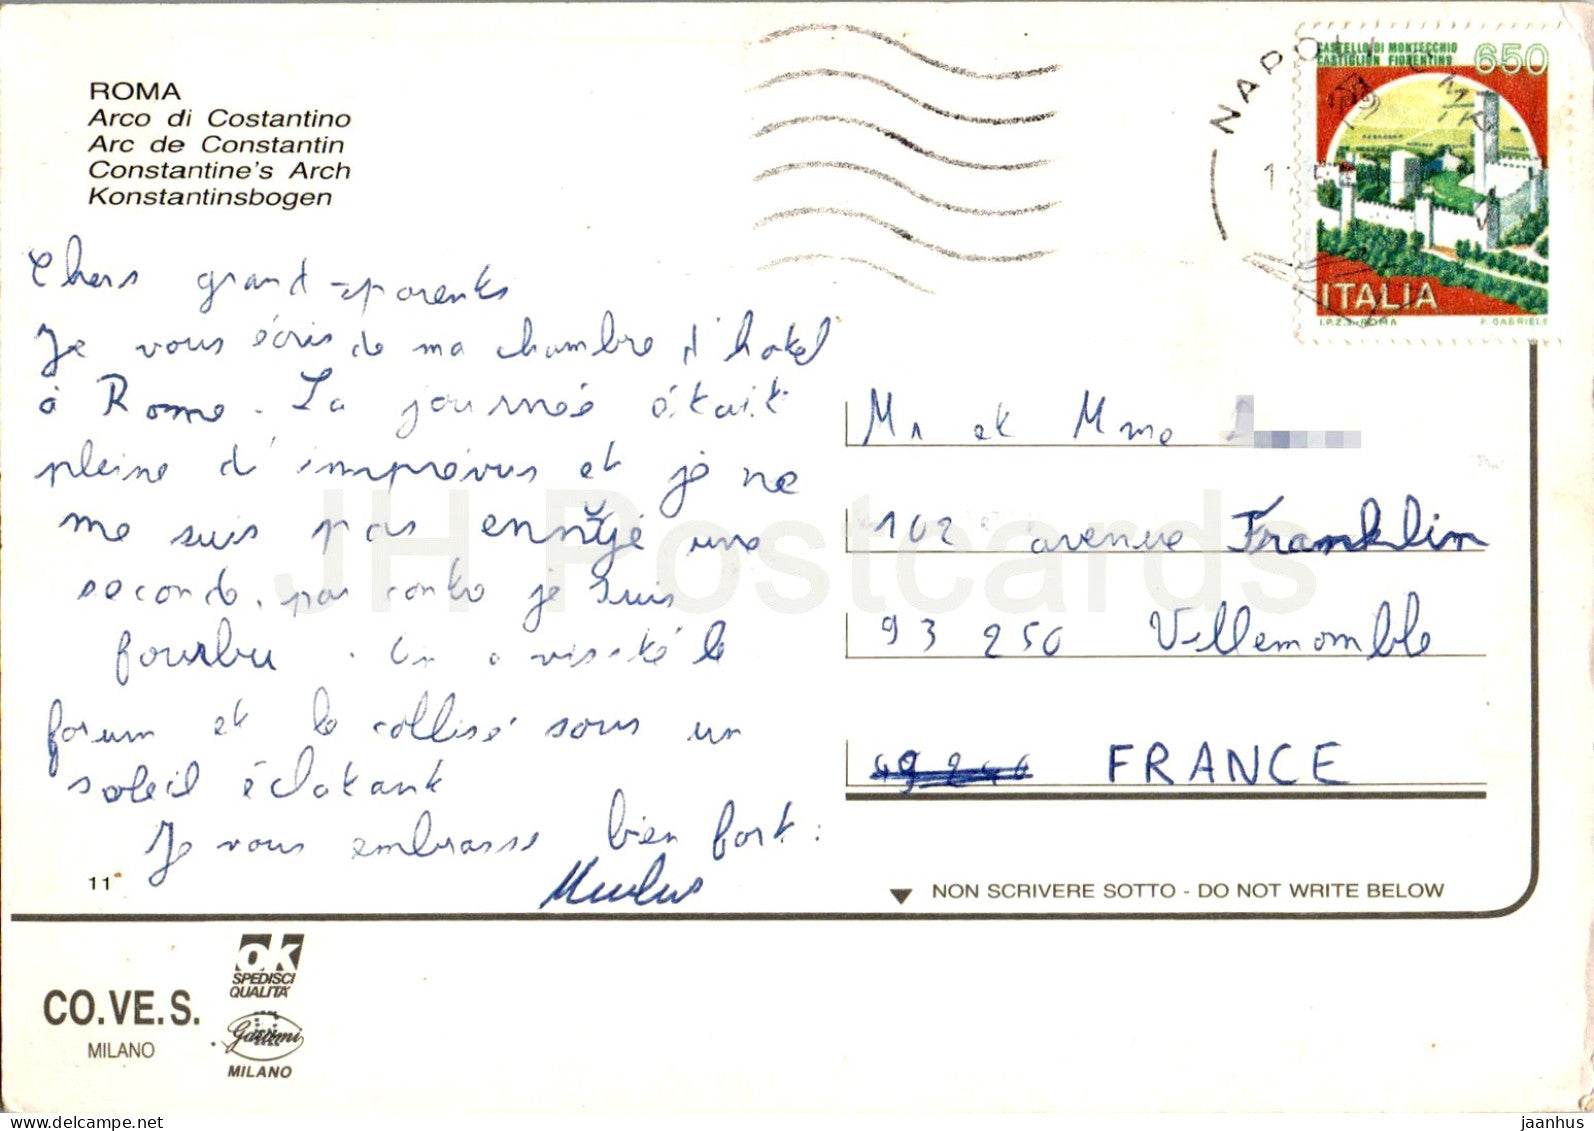 ROMA
Arco di Costantino
Arc de Constantin
Constantine's Arch
Konstantinsbogen
Chers grand-parents
Je vous écris de ma chambre d'hotel
à Rome. La journée était
pleine d'imprévus et je ne
me suis pas ennuyé une
seconde, par contre je suis
fourbu. On a visité le
forum et le collisé sous un
soleil éclatant
Je vous embrasse bien fort.
11
NAPOLI CMP
CASTELLO DI MONTECCHIO
CASTIGLION FIORENTINO
650
ITALIA
I.P.Z.S. ROMA
Mr et Mme
102 avenue Franklin
93 250 Villemomble
FRANCE
NON SCRIVERE SOTTO - DO NOT WRITE BELOW
CO.VE.S.
MILANO
ok
SPEDISCI
QUALITÀ
Garami
MILANO
JH Postcards
jaanhus